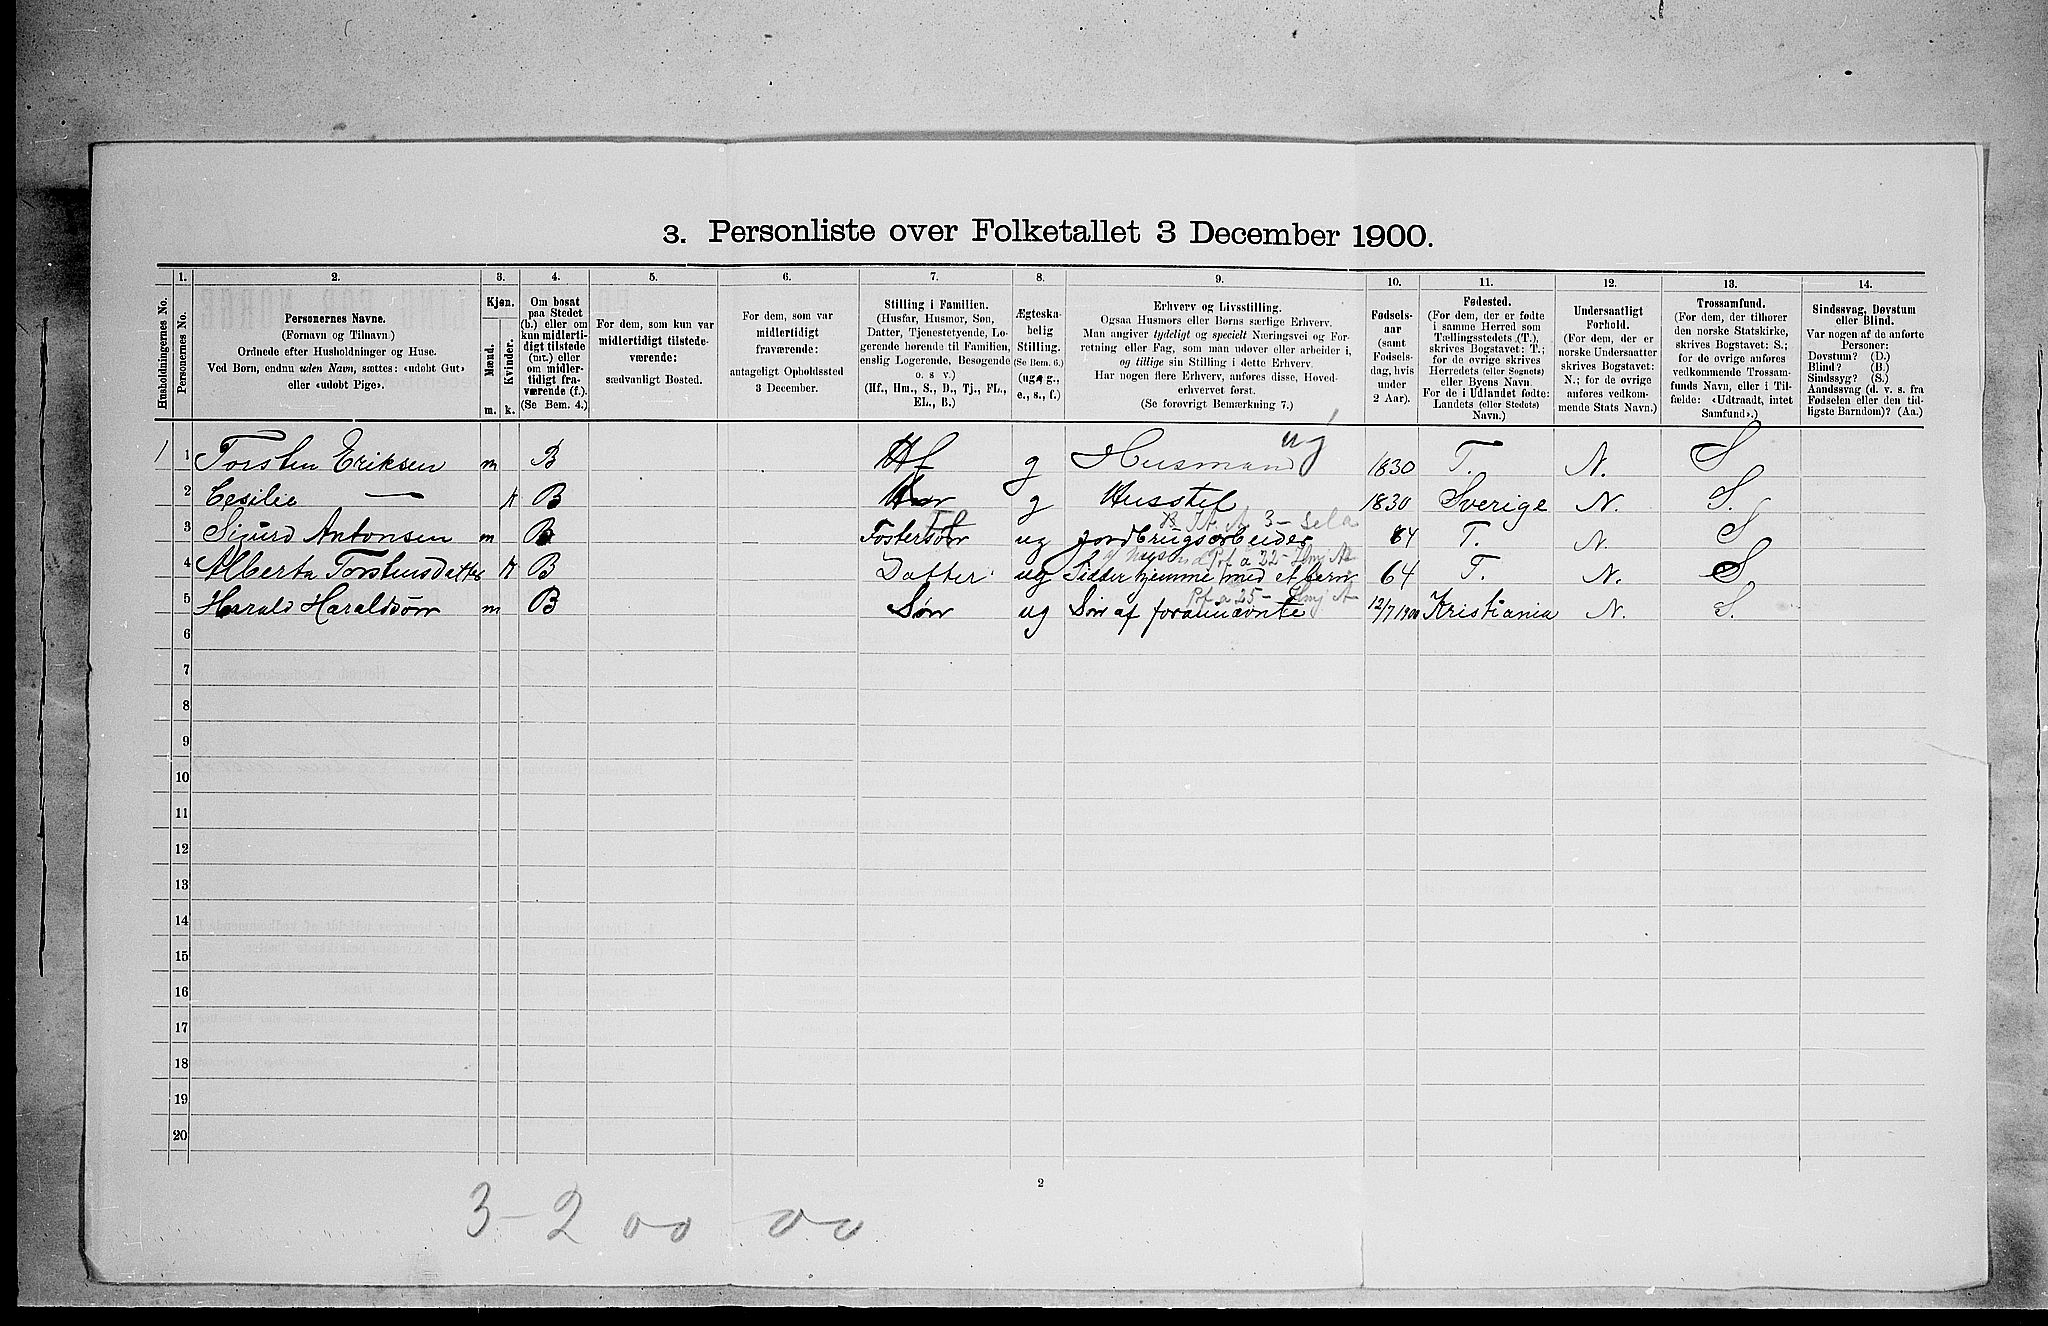 3. Personliste over Folketallet 3 December 1900.
Husholdningernes No.
1.
Personernes No.
2.
Personernes Navne.
(Fornavn og Tilnavn.)
Ordnede efter Husholdninger og Huse.
Ved Børn, endnu uden Navn, sættes: «udøbt Gut»
eller «udøbt Pige».
3.
Kjøn.
Mænd.
Kvinder.
m.
k.
4.
Om bosat
paa Stedet
(b.) eller om
kun midlerti-
digt tilstede
(mt.) eller
om midler-
tidigt fra-
værende (f.).
(Se Bem. 4.)
5.
For dem, som kun var
midlertidigt tilstede-
værende:
sædvanligt Bosted.
6.
For dem, som var
midlertidigt
fraværende:
antageligt Opholdssted
3 December.
7.
Stilling i Familien.
(Husfar, Husmor, Søn,
Datter, Tjenestetyende, Lo-
gerende hørende til Familien,
enslig Logerende, Besøgende
o. s v.)
(Hf., Hm., S., D., Tj., FL.,
EL., B.)
8.
Ægteska-
belig
Stilling.
(Se Bem. 6.)
(ug., g.,
e., s., f.)
9.
Erhverv og Livsstilling.
Ogsaa Husmors eller Børns særlige Erhverv.
Man angiver tydeligt og specielt Næringsvei og For-
retning eller Fag, som man udøver eller arbeider i,
og tillige sin Stilling i dette Erhverv.
Har nogen flere Erhverv, anføres disse, Hoved-
erhvervet først.
(Se forøvrigt Bemærkning 7.)
10.
Fødsels-
aar
(samt
Fødsels-
dag, hvis
under
2 Aar).
11.
Fødested.
(For dem, der er fødte
i samme Herred som
Tællingsstedets (T.),
skrives Bogstavet: T.;
for de øvrige skrives
Herredets (eller Sognets)
eller Byens Navn.
For de i Udlandet fødte:
Landets (eller Stedets)
Navn.)
12.
Undersaatligt
Forhold.
(For dem, der er
norske Undersaatter
skrives Bogstavet:
N.; for de øvrige
anføres vedkom-
mende Stats Navn.)
13.
Trossamfund.
(For dem, der tilhører
den norske Statskirke,
skrives Bogstavet: S.;
for de øvrige anføres
vedkommende Trossam-
funds Navn, eller i Til-
fælde: «Udtraadt, intet
Samfund».)
14.
Sindssvag, Døvstum
eller Blind.
Var nogen af de anførte
Personer:
Døvstum? (D.)
Blind? (B.)
Sindssyg? (S.)
Aandssvag (d. v. s. fra
Fødselen eller den tid-
ligste Barndom)? (Aa.)
1 1 Torsten Eriksen m B Hf g Husmand 1830 T. N. S.
2 Cesilie — k B g Husstel 1830 Sverige N. S.
3 Sigurd Antonsen m B Fostersøn ug jordbrugsarbeider 84 T. N. S
4 Alberta Torstensdatter k B Datter ug Sidder hjemme med et barn 64 T. N. S.
5 Harald Haraldsøn m B Søn ug Søn af forannævnte 12/7 1900 Kristiania N. S.
6
7
8
9
10
11
12
13
14
15
16
17
18
19
20
2
3-2 00 00